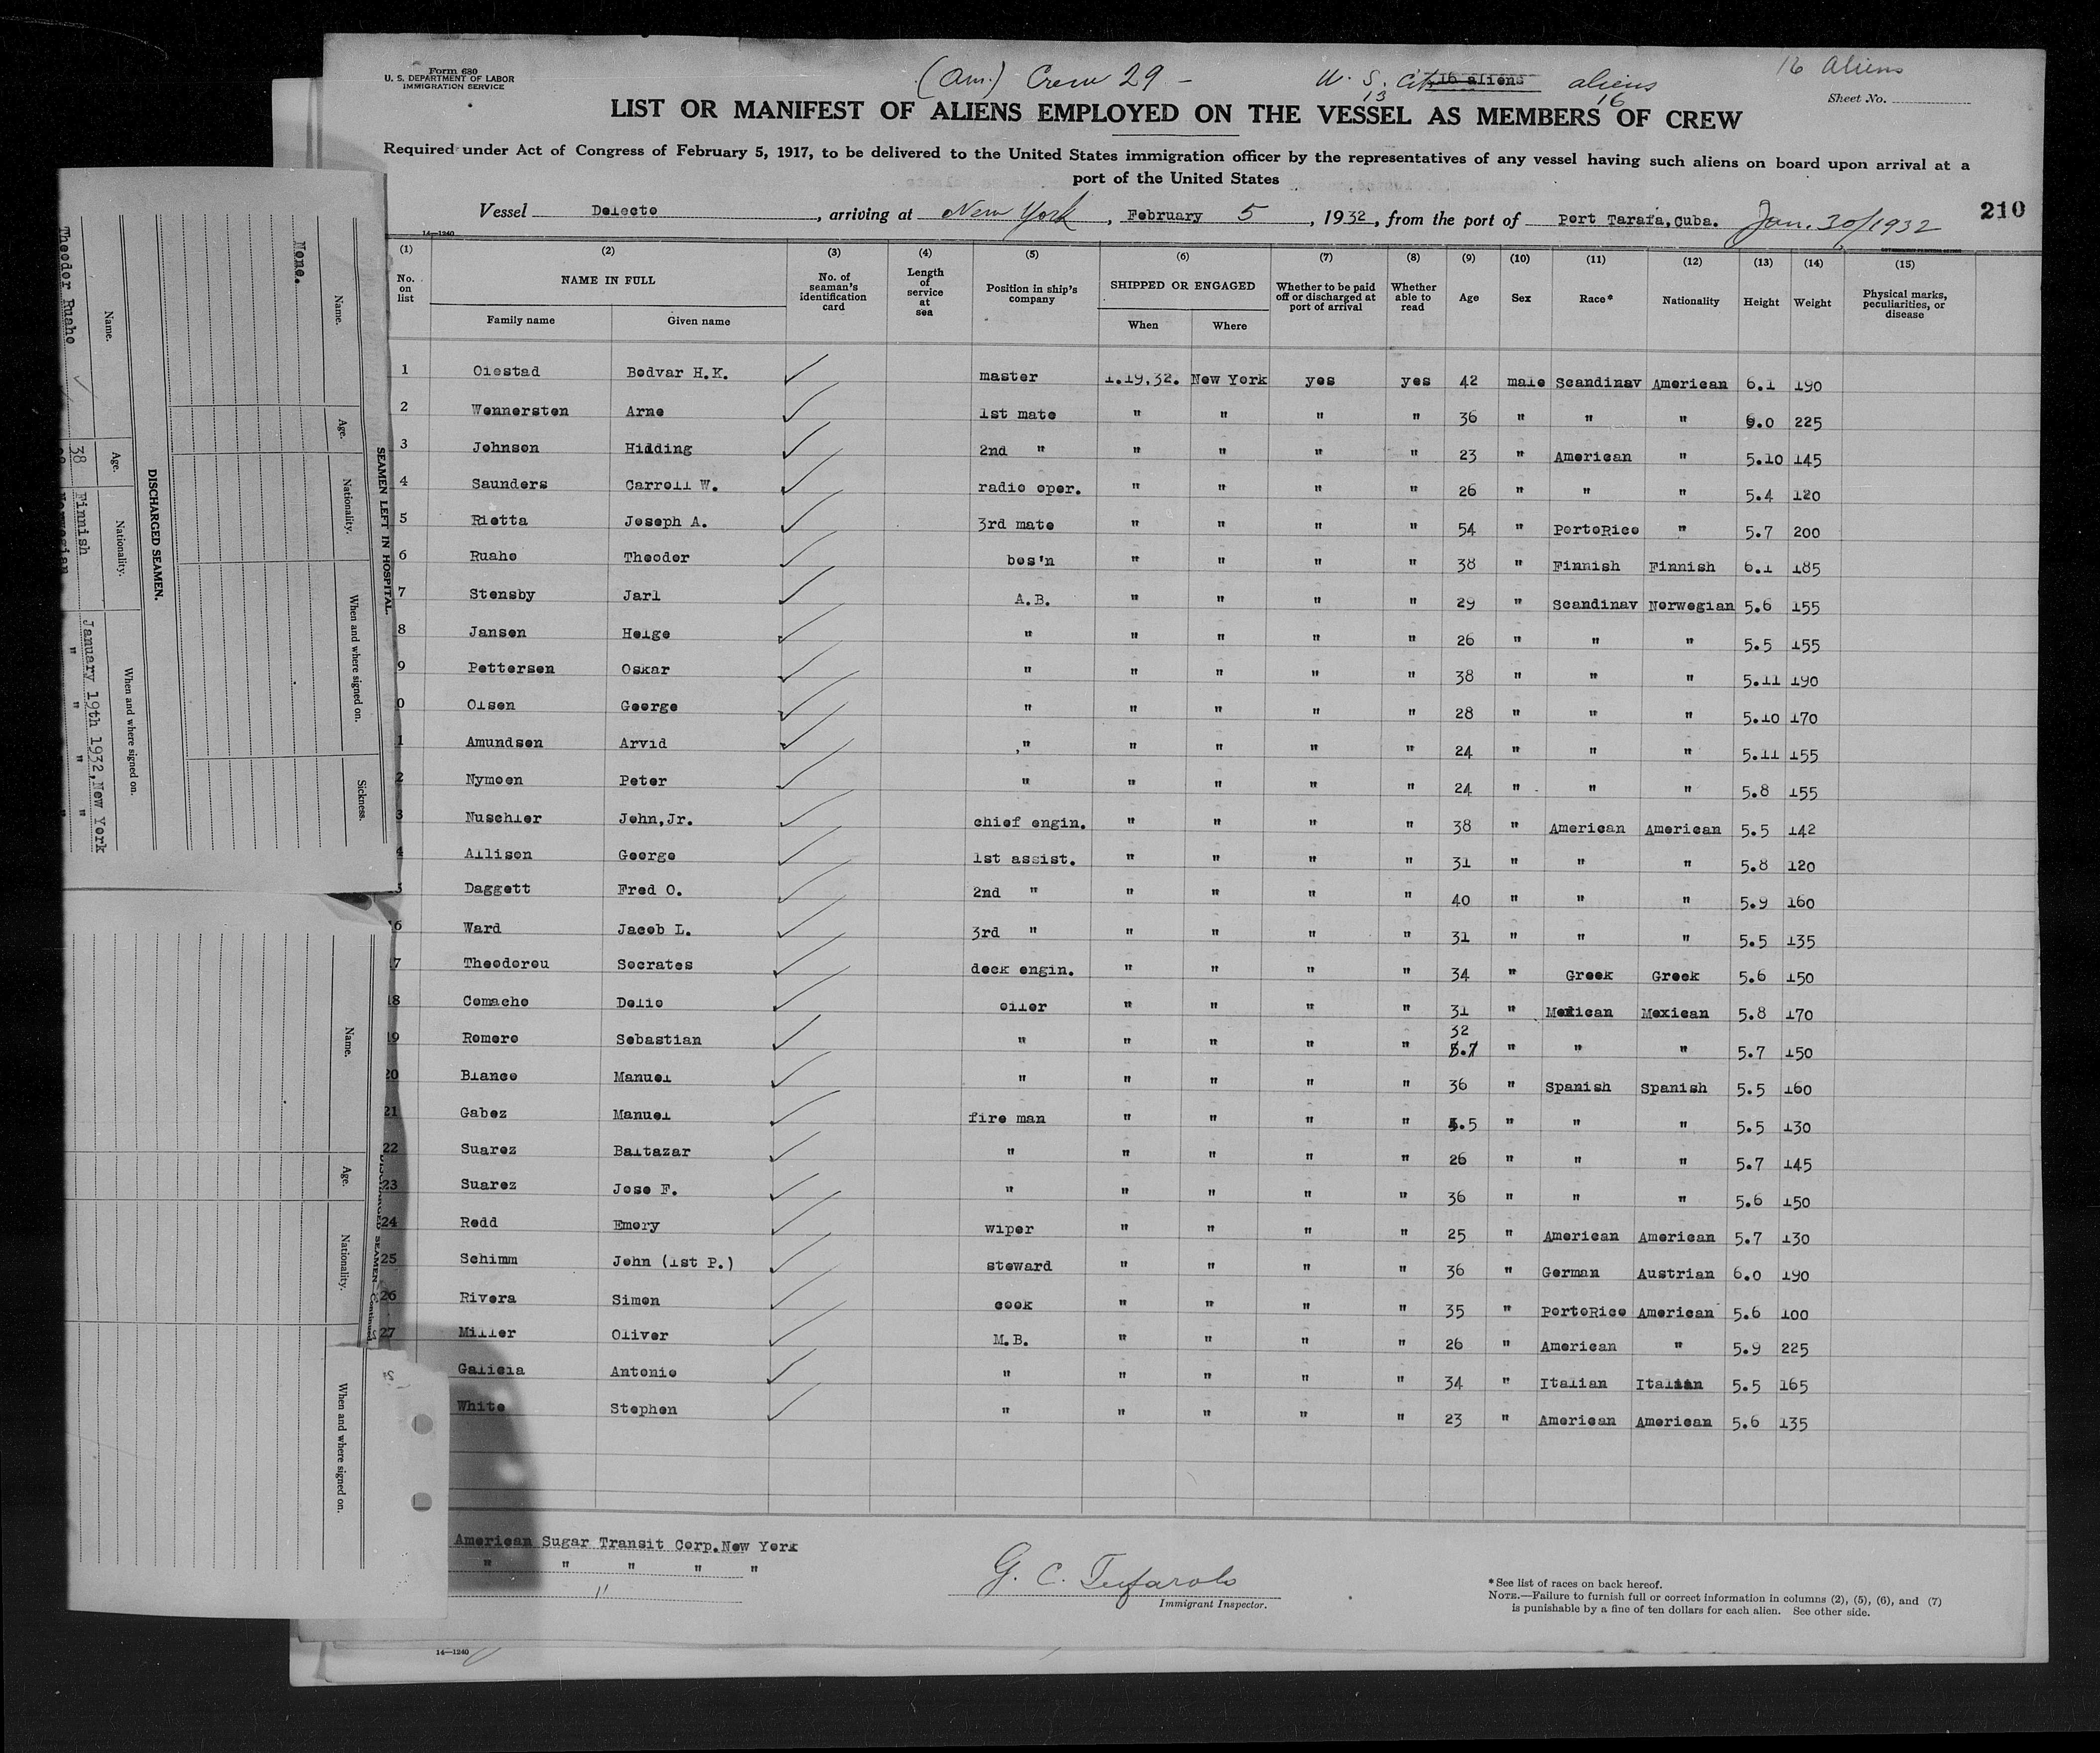 Form 680
U. S. DEPARTMENT OF LABOR
IMMIGRATION SERVICE
(Am.) Crew 29 - U. S. Cit 16 aliens aliens
13 16
16 Aliens
Sheet No.
LIST OR MANIFEST OF ALIENS EMPLOYED ON THE VESSEL AS MEMBERS OF CREW
Required under Act of Congress of February 5, 1917, to be delivered to the United States immigration officer by the representatives of any vessel having such aliens on board upon arrival at a
port of the United States
Vessel Delecto, arriving at New York, February 5, 1932, from the port of Port Tarafa, Cuba. Jan. 30/1932
210
14—1240
(1) (2) (3) (4) (5) (6) (7) (8) (9) (10) (11) (12) (13) (14) (15)
No. on list NAME IN FULL No. of seaman's identification card Length of service at sea Position in ship's company SHIPPED OR ENGAGED Whether to be paid off or discharged at port of arrival Whether able to read Age Sex Race* Nationality Height Weight Physical marks, peculiarities, or disease
Family name Given name When Where
1 Olestad Bodvar H.K. master 1.19.32. New York yes yes 42 male Scandinav American 6.1 190
2 Wennersten Arne 1st mate " " " " 36 " " " 6.0 225
3 Johnson Hidding 2nd " " " " " 23 " American " 5.10 145
4 Saunders Carroll W. radio oper. " " " " 26 " " " 5.4 120
5 Rietta Joseph A. 3rd mate " " " " 54 " PortoRico " 5.7 200
6 Ruaho Theodor bos'n " " " " 38 " Finnish Finnish 6.1 185
7 Stensby Jarl A.B. " " " " 29 " Scandinav Norwegian 5.6 155
8 Jansen Helge " " " " " 26 " " " 5.5 155
9 Pettersen Oskar " " " " " 38 " " " 5.11 190
0 Olsen George " " " " " 28 " " " 5.10 170
1 Amundsen Arvid " " " " " 24 " " " 5.11 155
2 Nymoen Peter " " " " " 24 " " " 5.8 155
3 Nuschler John, Jr. chief engin. " " " " 38 " American American 5.5 142
4 Allison George 1st assist. " " " " 31 " " " 5.8 120
5 Daggett Fred O. 2nd " " " " " 40 " " " 5.9 160
16 Ward Jacob L. 3rd " " " " " 31 " " " 5.5 135
17 Theodorou Socrates deck engin. " " " " 34 " Greek Greek 5.6 150
18 Comacho Delio oiler " " " " 31 " Mexican Mexican 5.8 170
19 Romero Sebastian " " " " " 32 5.7 " " " 5.7 150
20 Blanco Manuel " " " " " 36 " Spanish Spanish 5.5 160
21 Gabez Manuel fire man " " " " 5.5 " " " 5.5 130
22 Suarez Baltazar " " " " " 26 " " " 5.7 145
23 Suarez Jose F. " " " " " 36 " " " 5.6 150
24 Redd Emory wiper " " " " 25 " American American 5.7 130
25 Schimm John (1st P.) steward " " " " 36 " German Austrian 6.0 190
26 Rivera Simon cook " " " " 35 " PortoRico American 5.6 100
27 Miller Oliver M.B. " " " " 26 " American " 5.9 225
Galicia Antonio " " " " " 34 " Italian Italian 5.5 165
White Stephen " " " " " 23 " American American 5.6 135
American Sugar Transit Corp. New York
" " " " "
"
G. C. Tufarolo
Immigrant Inspector.
*See list of races on back hereof.
NOTE.—Failure to furnish full or correct information in columns (2), (5), (6), and (7)
is punishable by a fine of ten dollars for each alien. See other side.
14—1240
SEAMEN LEFT IN HOSPITAL.
Name. Age. Nationality. When and where signed on. Sickness.
None.
DISCHARGED SEAMEN.
Name. Age. Nationality. When and where signed on.
Theodor Ruaho 38 Finnish January 19th 1932, New York
Norwegian " " " "
DISCHARGED SEAMEN—Continued
Name. Age. Nationality. When and where signed on.